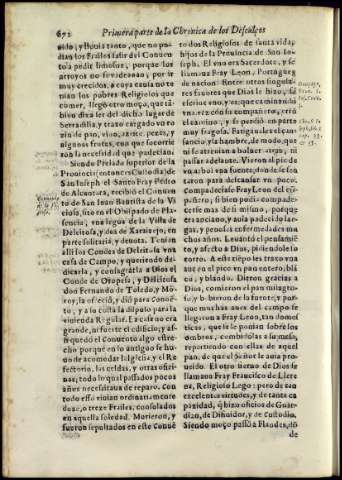 672 Primera parte de la Chronica de los Descalços
nido, y lluuia tanto, que no po-
dian los Frailes salir del Conuen
to a pedir limosna, porque los
arroyos no se vadeauan, por ir
muy crecidos, a cuya causa no te
nian los pobres Religiosos que
comer, llegó otro moço, que tã-
bien dixa ser del dicho lugar de
Serradilla, y traxo cargado vn ro
zin de pan, vino, azeite, peces, y
algunas frutas, con que socorrie
ron la necesidad que padecian.
Siendo Prelado superior de la
Prouincia (entonces Custodia) de
San Ioseph el Santo Fray Pedro
de Alcantara, recibió el Conuen
to de San Iuan Bautista de la Vi
ciosa, sito en el Obispado de Pla-
sencia, vna legua de la Villa de
Deleitosa, y dos de Xaraizejo, en
parte solitaria, y deuota. Tenian
alli los Condes de Deleitosa vna
casa de Campo, y queriendo de-
dicarla, y consagrarla a Dios el
Conde de Oropesa, y Deleitosa
don Fernando de Toledo, y Mo-
roy, la ofreció, y dió para Conuẽ-
to, y a su costa la dispuso para la
viuienda Regular. La casa no era
grande, ni fuerte el edificio; y as-
si quedó el Conuento algo estre-
cho porque en lo antiguo se hu-
uo de acomodar la Iglesia, y el Re
fectorio, las celdas, y otras ofici-
nas; todo lo qual passados pocos
años necessitaua de reparo. Con
todo esso viuian ordinariamente
doze, o treze Frailes, consolados
en aquella soledad. Murieron, y
fueron sepultados en este Conuẽ
to dos Religiosos de santa vida,
hijos de la Prouincia de San Io-
seph. El vno era Sacerdote, y se
llamaua Fray Leon, Portugues
de nacion. Entre otros singula-
res fauores que Dios le hizo, se
cuenta vno, y es: que caminando
vna vez con su compañero, erró
el camino, y se perdió en parte
muy fragosa. Fatigauales el can-
sancio, y la hambre, de modo, que
ni se atreuian a boluer atras, ni
passar adelante. Vieron al pie de
vn arbol vna fuente, donde se sen
taron para descansar vn poco.
Compadeciase Fray Leon del cõ-
pañero, si bien podia compade-
cerse mas de si mismo, porque
era anciano, y auia padecido lar-
gas, y penosas enfermedades mu
chos años. Leuantó el pensamiẽ-
to, y afecto a Dios, pidiendole so
corro. A este tiẽpo les traxo vna
aue en el pico vn pan entero, blã
co, y blando. Dieron gracias a
Dios, comieron el pan milagro-
so, y bebieron de la fuente, y por-
que muchas aues del campo se
llegaron a Fray Leon, tan domes
ticas, que se le ponian sobre los
ombros, combidolas a su mesa,
repartiendo con ellas de aquel
pan, de que el Señor le auia pro-
ueido. El otro sieruo de Dios se
llamaua Fray Francisco de Llere
na, Religioso Lego; pero de tan
excelentes virtudes, y de tanta ca
pacidad, q̃ hizo oficios de Guar-
dian, de Difinidor, y de Custodio.
Siendo moço passó a Flandes, dõ
de